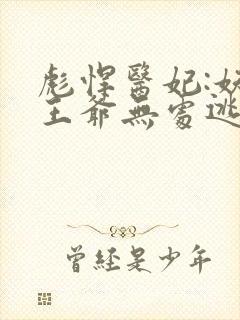 彪悍醫妃:妖
王爺無處逃
曾經是少年